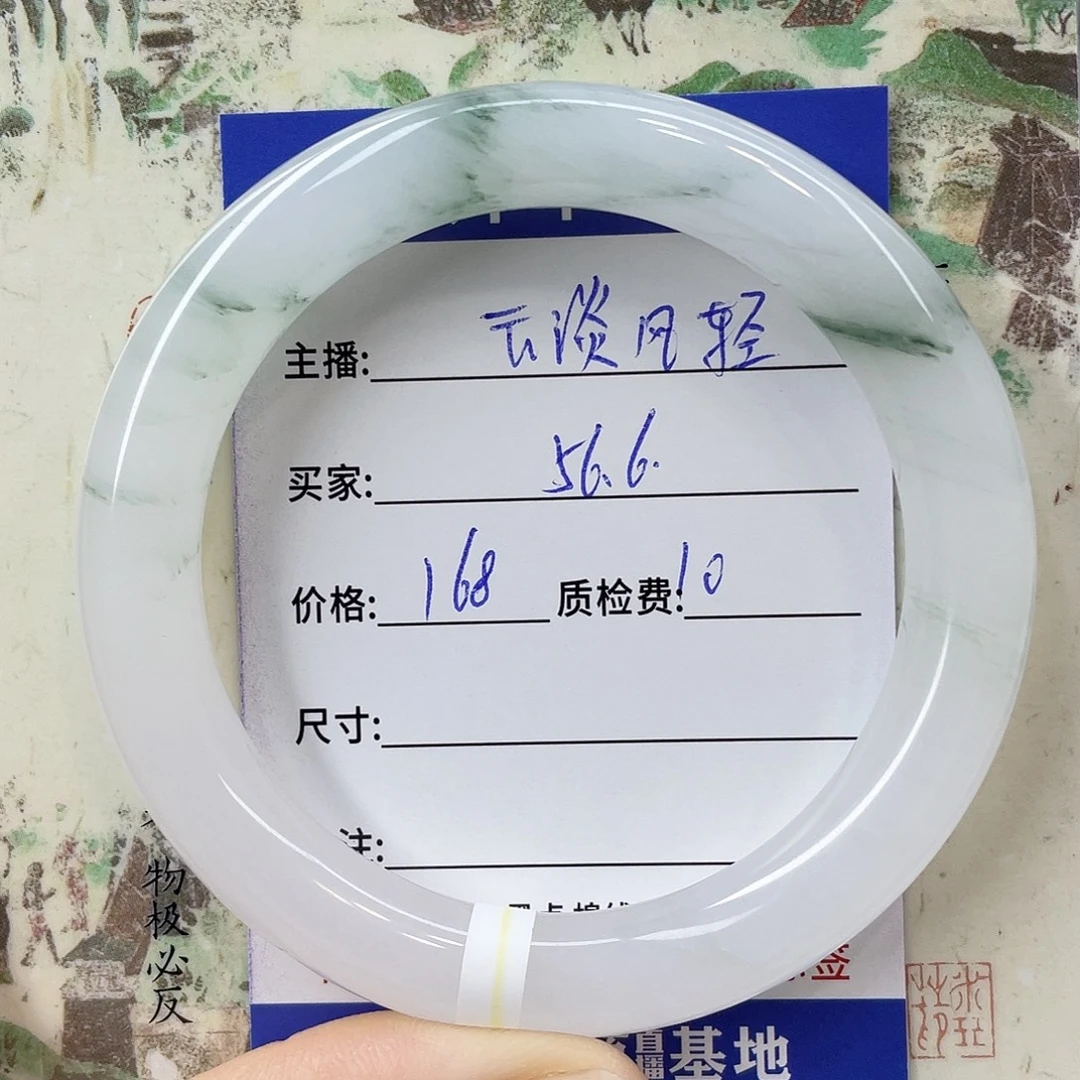 主播: 云淡风轻
买家: 56.6.
价格: 168 质检费: 10
尺寸:
注:
签
直播基地
物极必反